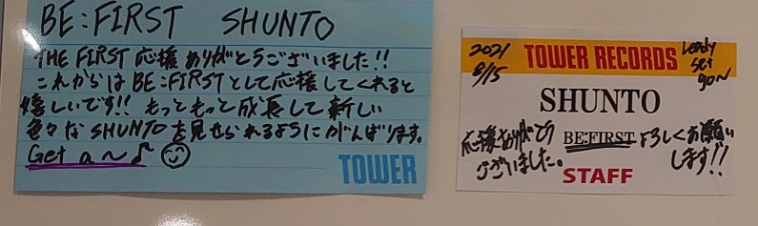 BE:FIRST SHUNTO
THE FIRST 応援ありがとうございました!!
これからはBE:FIRSTとして応援してくれると
嬉しいです!! もっともっと成長して新しい
色々なSHUNTOを見せられるようにがんばります。
Get a~♪
TOWER
2021
8/15
TOWER RECORDS
Ready
set
go~
SHUNTO
応援ありがとう
ございました。
BE:FIRST よろしくお願い
します!!
STAFF